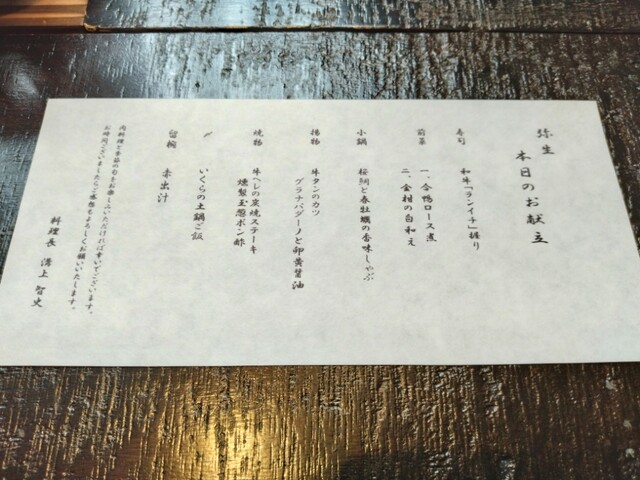 弥生
本日のお献立
寿司
和牛「ランイチ」握り
前菜
一、合鴨ロース煮
二、金柑の白和え
小鍋
桜鯛と春牡蠣の香味しゃぶ
揚物
牛タンのカツ
グラナパダーノと卵黄醤油
焼物
牛ヘレの炭焼ステーキ
燻製玉葱ポン酢
〆
いくらの土鍋ご飯
留椀
赤出汁
肉料理と季節の旬をお楽しみいただければ幸いでございます。
お時間ございましたらご感想もよろしくお願いいたします。
料理長 溝上 智史